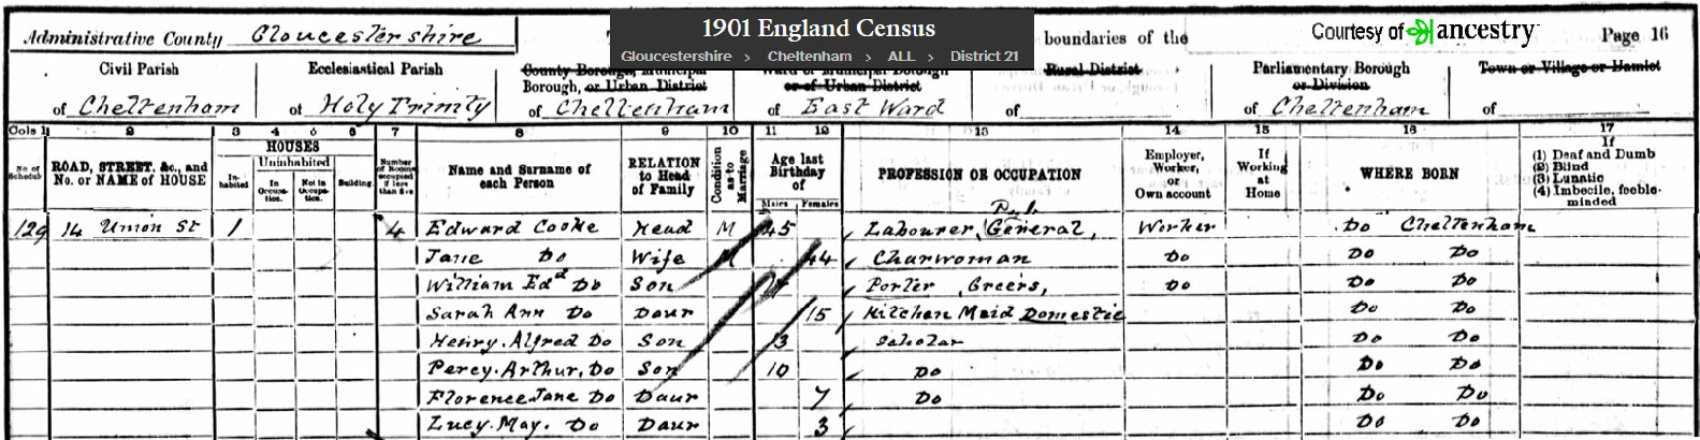 1901 England Census
Gloucestershire > Cheltenham > ALL > District 21
Administrative County Gloucestershire
boundaries of the
Courtesy of ancestry
Page 16
Civil Parish
of Cheltenham
Ecclesiastical Parish
of Holy Trinity
County Borough, Municipal
Borough, or Urban District
of Cheltenham
Ward of Municipal Borough
or of Urban District
of East Ward
Rural District
of
Parliamentary Borough
or Division
of Cheltenham
Town or Village or Hamlet
of
Cols 1 2 3 4 5 6 7 8 9 10 11 12 13 14 15 16 17
No. of Schedule
ROAD, STREET, &c., and
No. or NAME of HOUSE
HOUSES
Inhabited
Uninhabited
In Occupation.
Not in Occupation.
Building
Number of Rooms occupied if less than five
Name and Surname of
each Person
RELATION
to Head
of Family
Condition as to Marriage
Age last
Birthday
of
Males Females
PROFESSION OR OCCUPATION
Employer,
Worker,
or
Own account
If
Working
at
Home
WHERE BORN
If
(1) Deaf and Dumb
(2) Blind
(3) Lunatic
(4) Imbecile, feeble-
minded
129 14 Union St 1 4 Edward Cooke Head M 45 Labourer, General, Worker Do Cheltenham
Jane Do Wife M 44 Charwoman Do Do Do
William Edd Do Son Porter Greers, Do Do Do
Sarah Ann Do Daur 15 Kitchen Maid Domestic Do Do
Henry. Alfred Do Son 13 Scholar Do Do
Percy. Arthur, Do Son 10 Do Do Do
Florence Jane Do Daur 7 Do Do Do
Lucy. May. Do Daur 3 Do Do